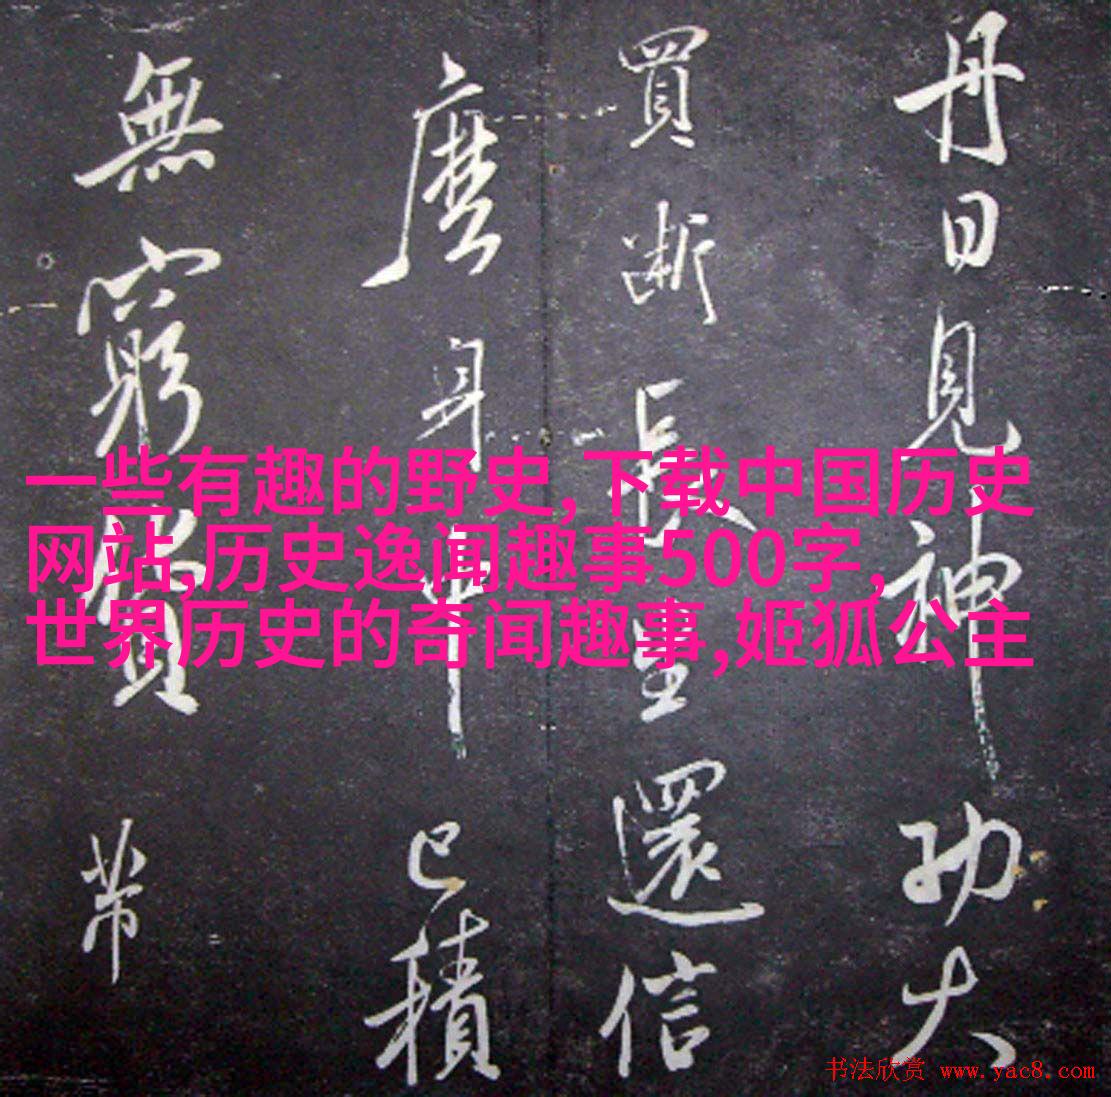 丹日見神功大
買斷長生還信
麼身中已積
無窮貨帶
一些有趣的野史,下载中国历史
网站,历史逸闻趣事500字,
世界历史的奇闻趣事,姬狐公主
书法欣赏 www.yac8.com